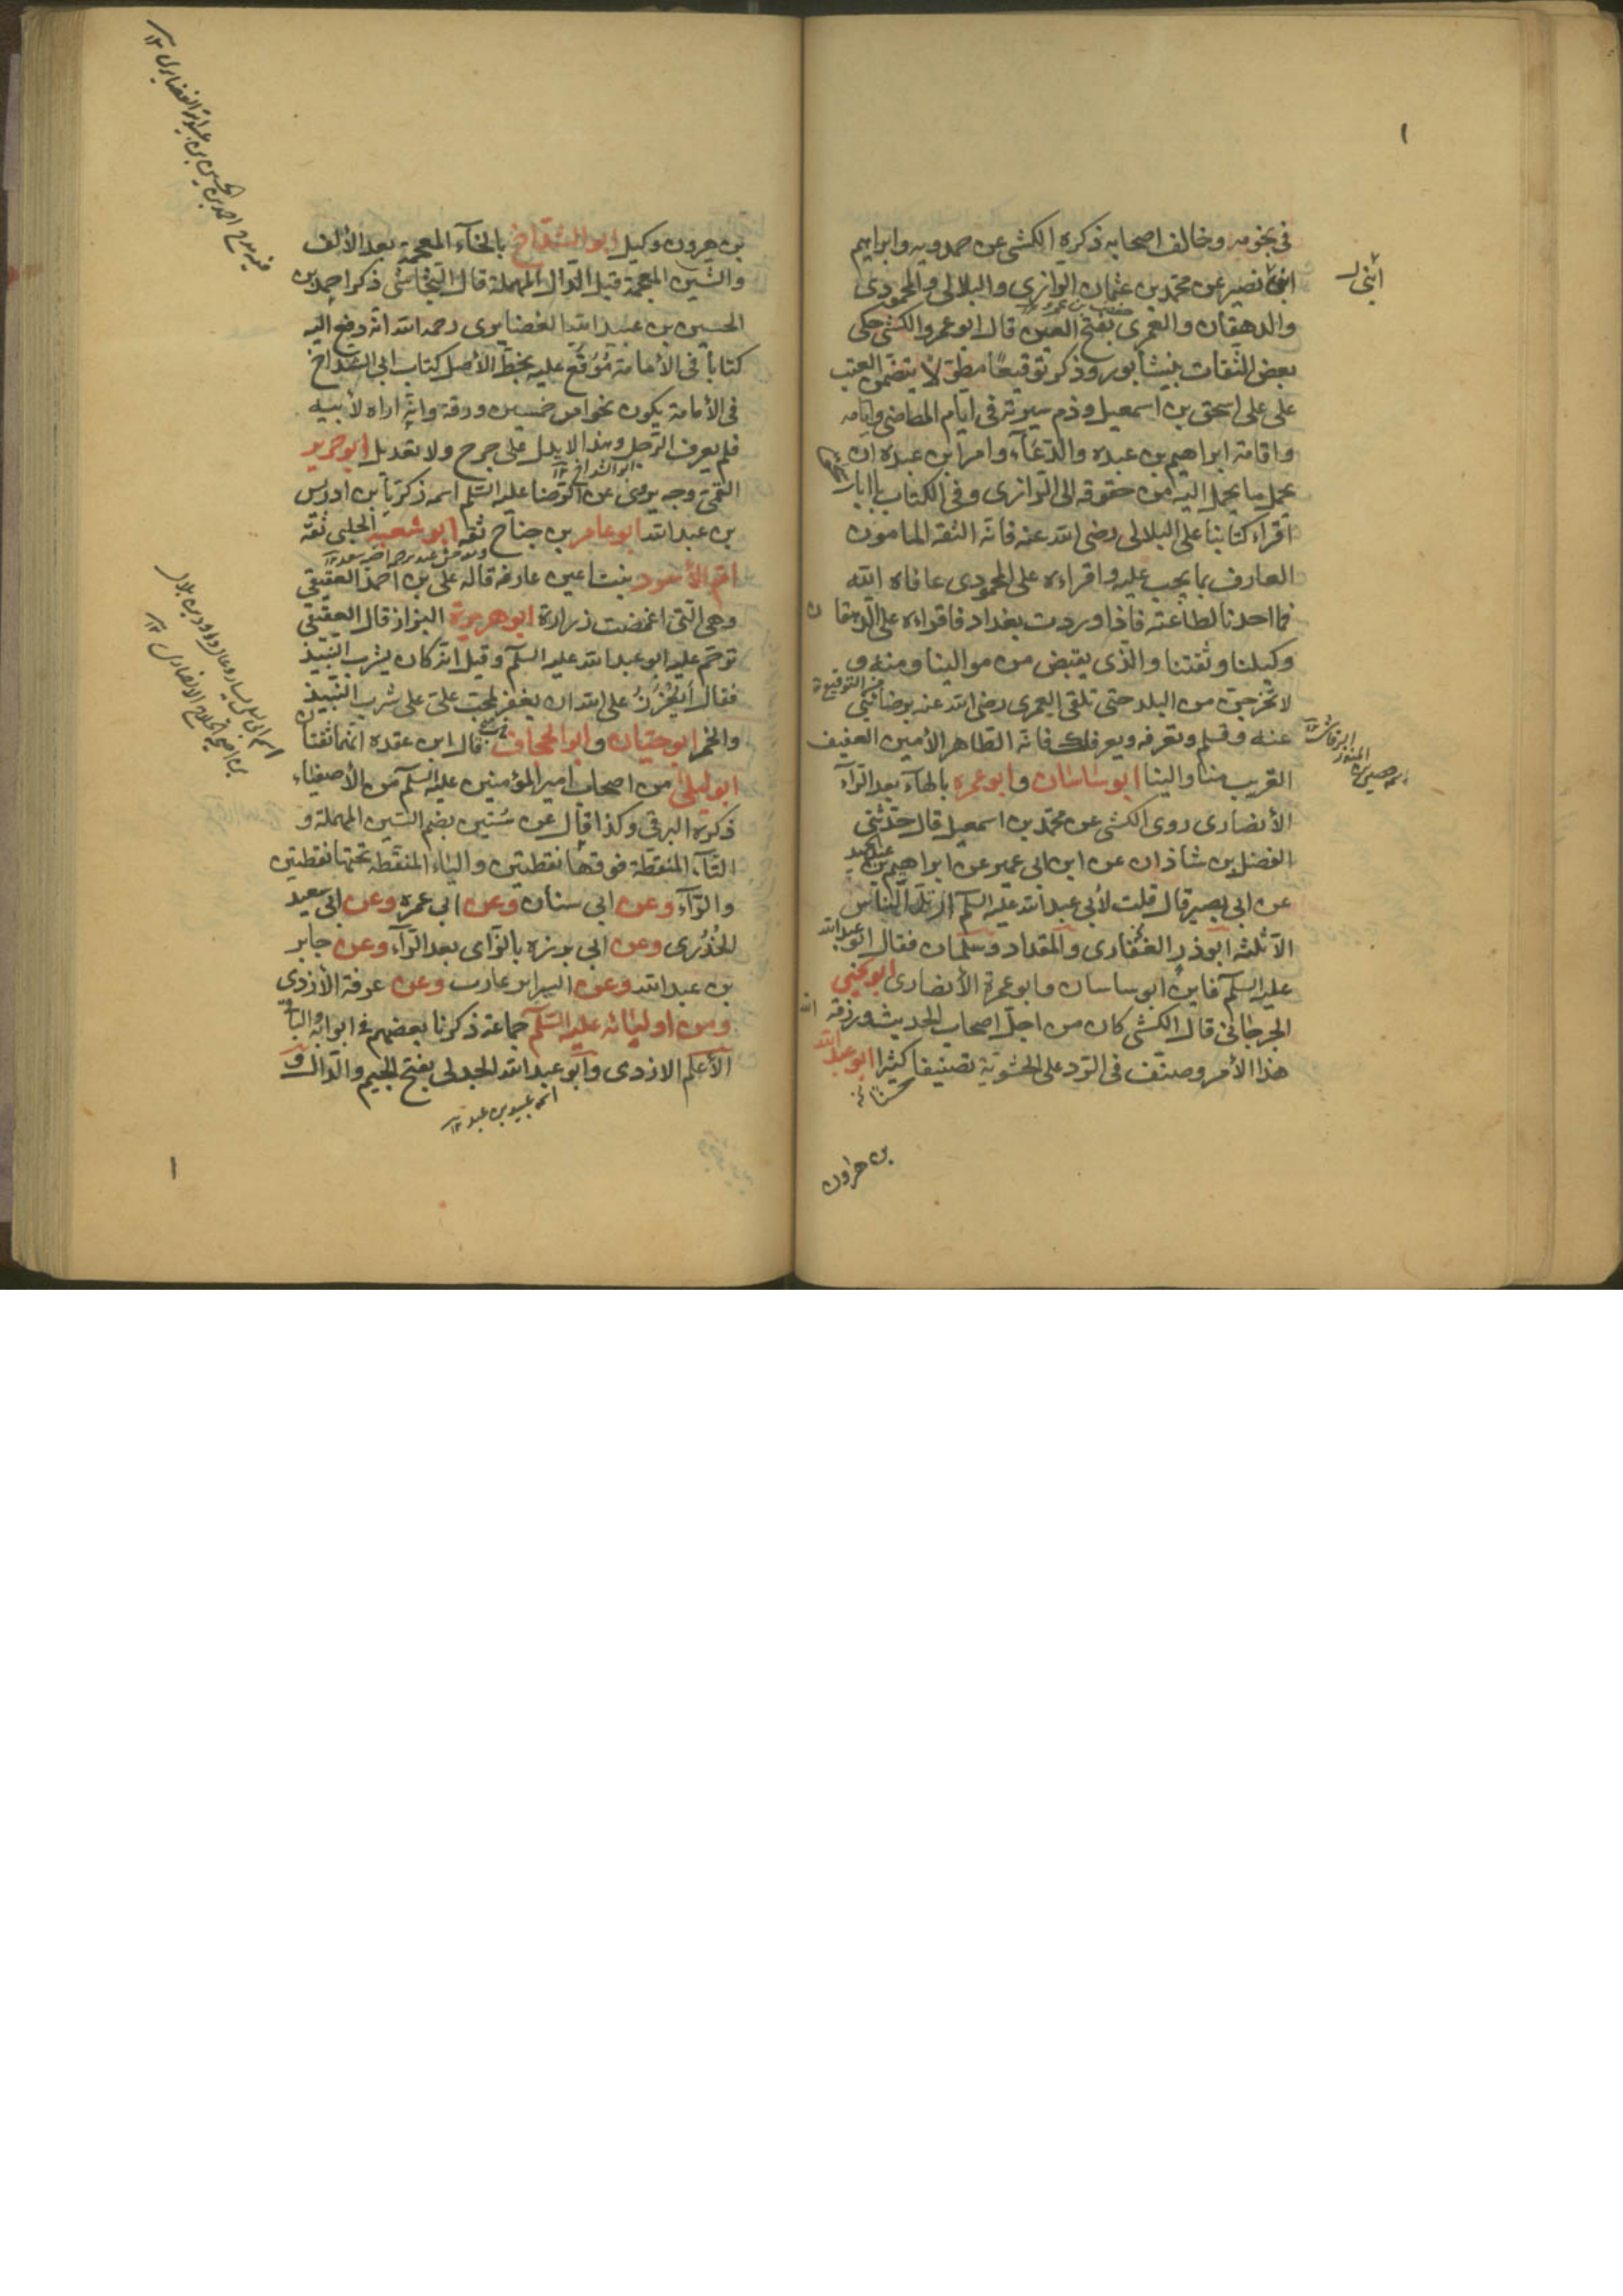 ١
في نحو مهر وخالف اصحابه ذكره الكشي عن حمدويه وابراهيم
ابنى نصير عن محمد بن عثمان الرازي والبلالي والمحمودي
والدهقان والعمري بفتح العين قال ابو عمرو الكشي حكى
بعض الثقات بنيشابور وذكر توقيعًا مطولا يتضمن العتب
على على اسحق بن اسمعيل وذم سيرته في ايام الماضي وايامه
واقامة ابراهيم بن عبده والدعاء وامر ابن عبده ان
يحمل ما يحمل اليه من حقوقه الى الرازي وفي الكتاب
اقراء كتابنا على البلالي رضى الله عنه فانه الثقة المامون
العارف بما يجب عليه واقراءه على المحمودي عافاه الله
فما احمدنا لطاعته فاذا وردت بغداد فاقراءه على الدهقان
وكيلنا وثقتنا والذي يقبض من موالينا ومنه و
لا تخرجن من البلد حتى تلقى العمري رضى الله عنه برضائي
عنه وتسلم وتعرفه ويعرفك فانه الطاهر الأمين العفيف
القريب منا والينا ابو ساسان وابو عمره بالهاء بعد الراء
الأنصاري روى الكشي عن محمد بن اسمعيل قال حدثني
الفضل بن شاذان عن ابن ابى عمير عن ابراهيم بن عبد الحميد
عن ابى بصير قال قلت لأبى عبد الله عليه السلم ارتد الناس
الا ثلثة ابوذر الغفاري والمقداد وسلمان فقال ابو عبد الله
عليه السلم فاين ابو ساسان وابو عمرة الأنصاري ابو يحيى
الجرجاني قال الكشي كان من اجل اصحاب الحديث ورزقه الله
هذا الأمر وصنف في الرد على الحشوية تصنيفا كثيرا ابو عبد الله
بن هرون
بن هرون وكيل ابو الشداخ بالخاء المعجمة بعد الألف
والشين المعجمة قبل الدال المهملة قال النجاشي ذكر احمد بن
الحسين بن عبيد الله الغضايري رحمه الله انه دفع اليه
كتابا في الأمامة موقع عليه بخط الأصل كتاب ابى الشداخ
في الأمامة يكون نحوا من خمسين ورقة وانه اراه لأبيه
فلم يعرف الرجل وهذا لا يدل على جرح ولا تعديل ابو جرير
القمي وجه يروى عن الرضا عليه السلم اسمه زكريا بن ادريس
بن عبد الله ابو عامر بن جناح ثقة ابو شعبة الحلبي ثقة
ام الأسود بنت اعين عارفه قاله على بن احمد العقيقي
وهي التي اغمضت زرارة ابو هريرة البزاز قال العقيقي
ترحم عليه ابو عبد الله عليه السلم وقيل انه كان يشرب النبيذ
فقال أيعُزّ على الله ان يغفر لمحب على على شرب النبيذ
والخمر ابو حيان وابو الجحاف قال ابن عقده انهما ثقتان
ابو ليلى من اصحاب امير المؤمنين عليه السلم من الأصفياء
ذكره البرقي وكذا قال عن ستين بضم السين المهملة و
التاء المنقطة فوقها نقطتين والياء المنقطة تحتها نقطتين
والراء وعن ابى سنان وعن ابى عمره وعن ابى سعيد
الخدري وعن ابى برزه بالزاي بعد الراء وعن جابر
بن عبد الله وعن البراء بن عازب وعن عرفة الأزدي
ومن اوليائه عليه السلم جماعة ذكرنا بعضهم في ابوابه والباقي
الأعلم الازدي وابو عبد الله الجدلي بفتح الجيم والدال و
اسمه عبيد بن عبد ١٢
١